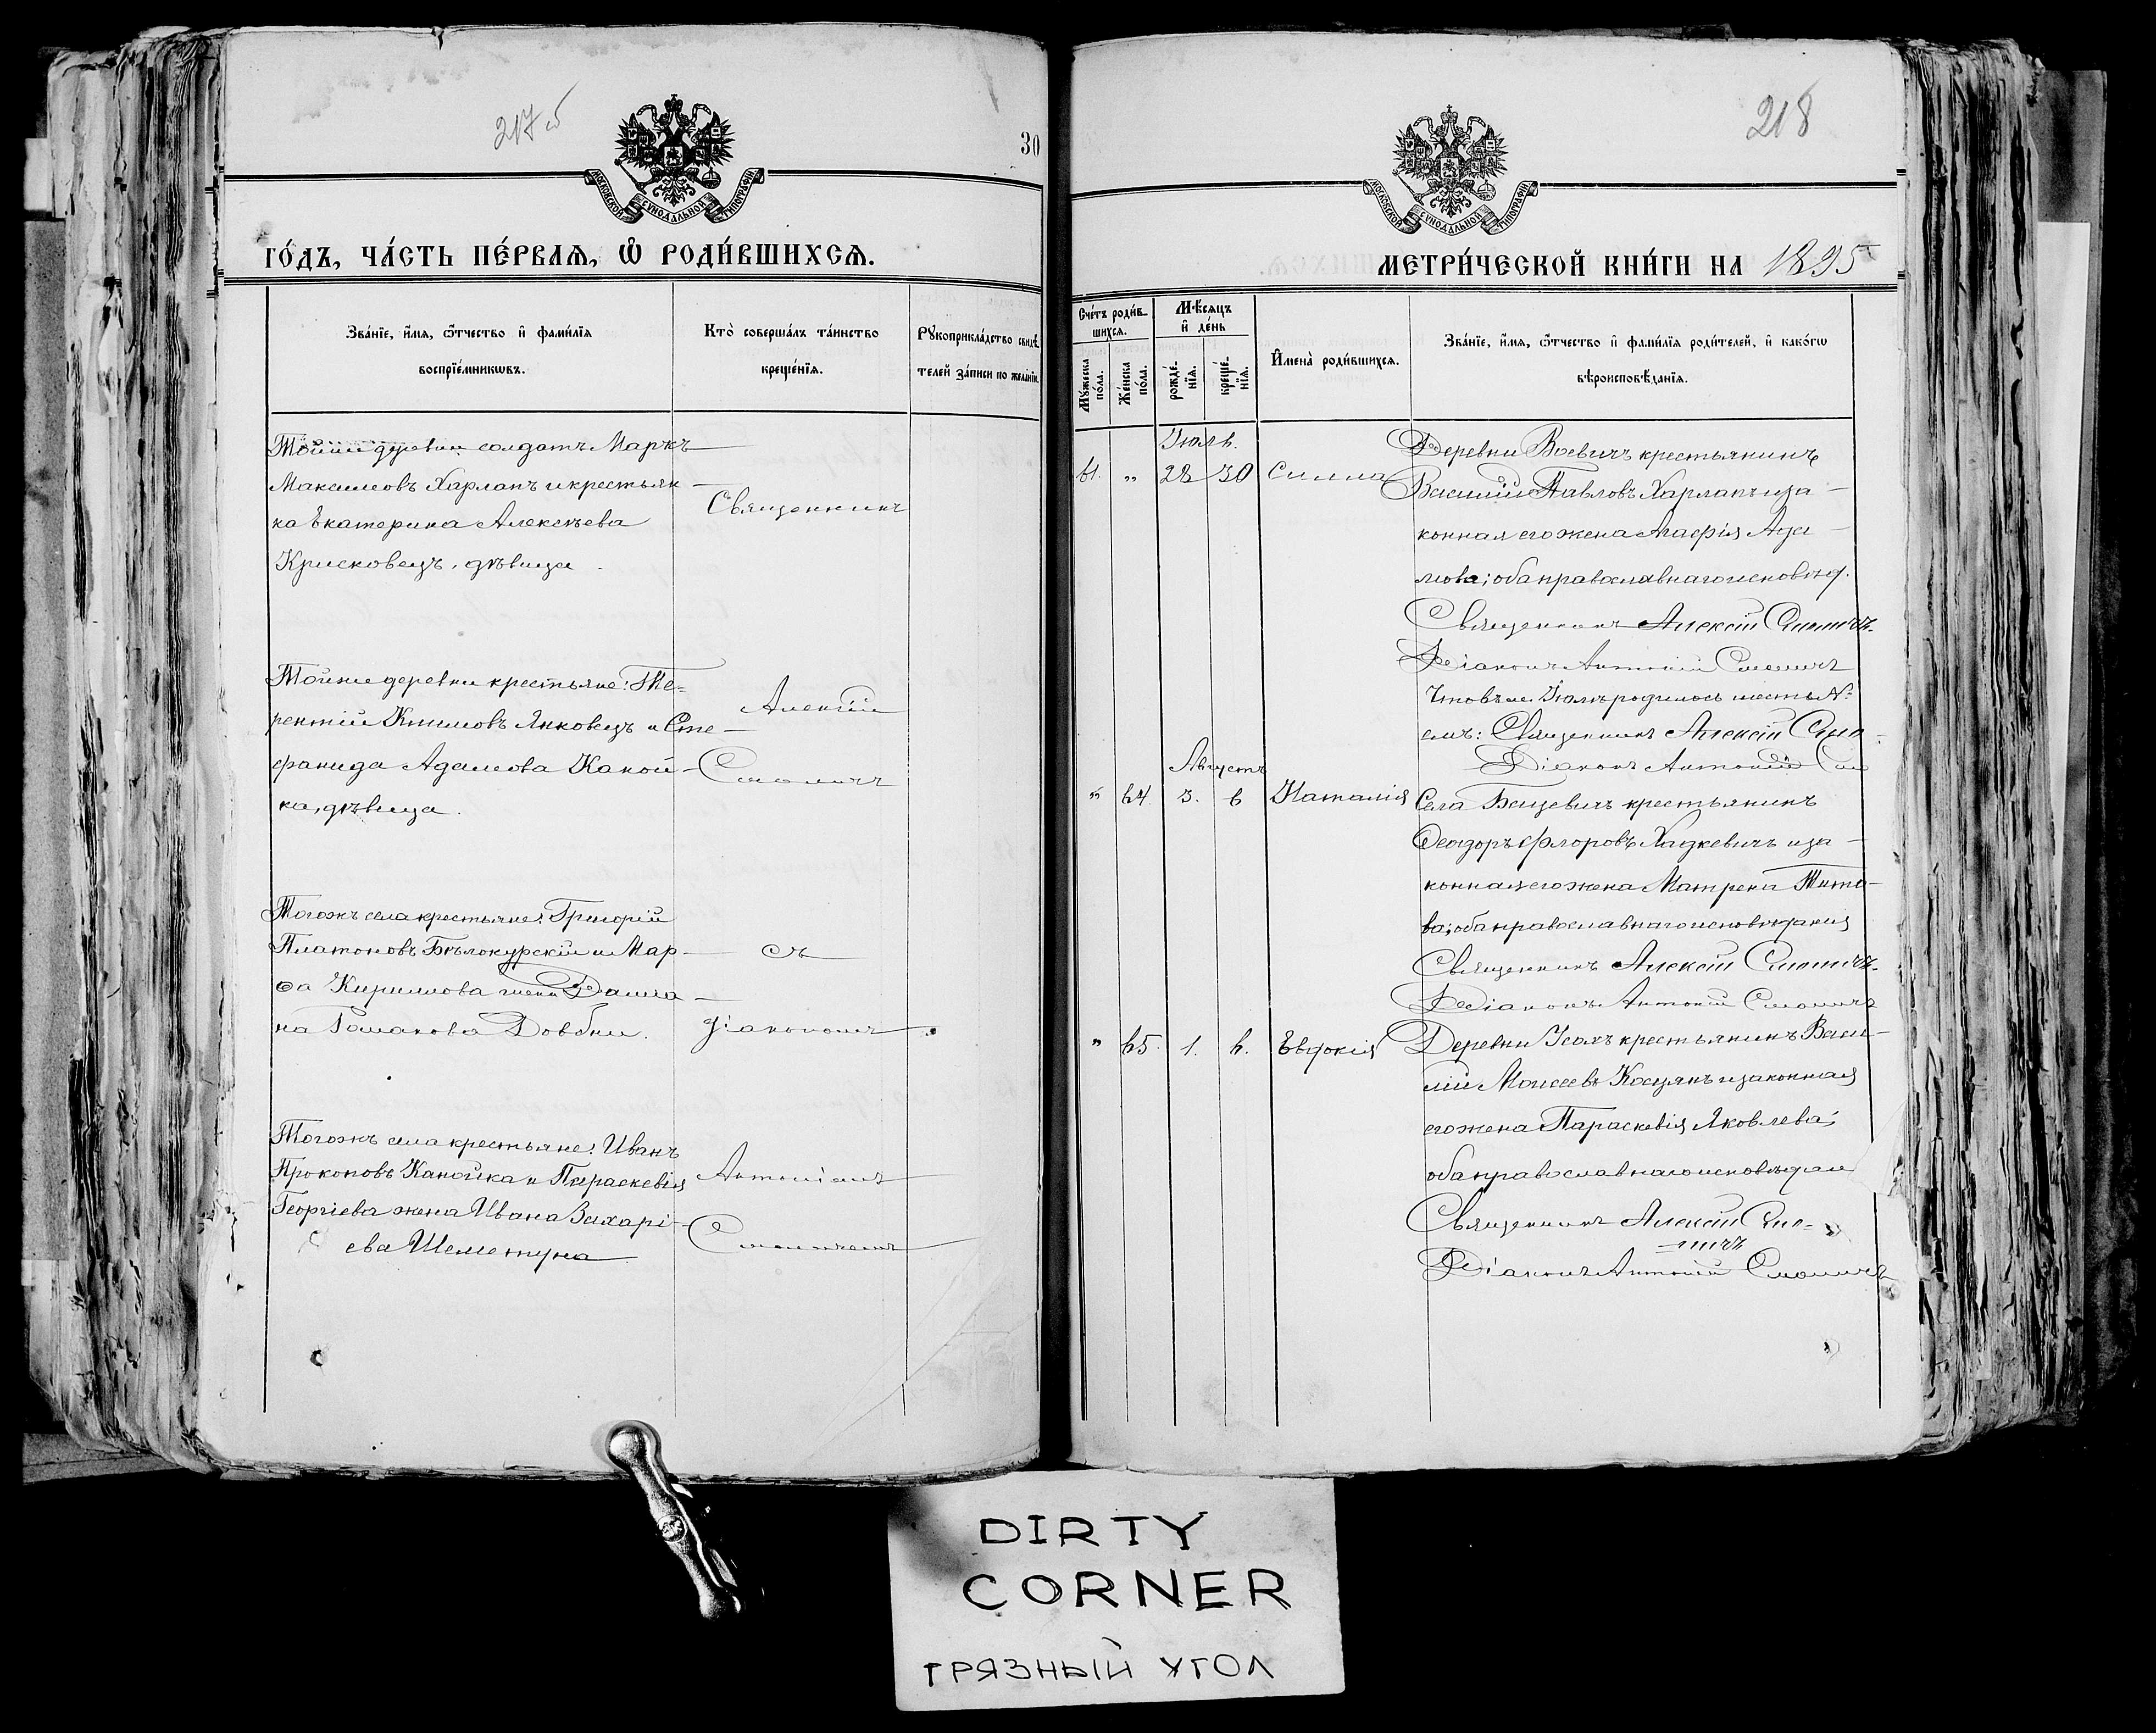 217 об
30
МОСКОВСКОЙ СѴНОДАЛЬНОЙ ТИПОГРАФІИ
ГО́ДЪ, ЧА́СТЬ ПЕ́РВАѦ, Ѽ РОДИ́ВШИХСѦ.
Зва́нїе, и҆́мѧ, ѻ҆́тчество и҆ фами́лїѧ
воспрїе́мникѡвъ.
Кто̀ соверша́лъ та́инство
креще́нїѧ.
Рꙋкоприкла́дство свидѣ́-
телей за́писи по жела́нїю.
Тойже деревни солдатъ Маркъ
Максимовъ Харлапъ и крестьян
ка Екатерина Алексѣева
Крисковецъ, дѣвица
Тойже деревни крестьяне: Те-
рентій Климовъ Янковецъ и Сте-
фанида Адамова Каной-
ка, дѣвица.
Тогожъ села крестьяне: Григорій
Платоновъ Бѣлокурскій и Мар-
ѳа Кириллова жена Даміа-
на Романова Довбни.
Тогожъ села крестьяне: Иванъ
Прокоповъ Канойка и Параскевія
Георгіева жена Ивана Захарі-
ева Шеметуна
Священникъ
Алексій
Смоличъ
съ
діакономъ
Антоніемъ
Смоличемъ
218
МОСКОВСКОЙ СѴНОДАЛЬНОЙ ТИПОГРАФІИ
МЕТРИ́ЧЕСКОЙ КНИ́ГИ НА 1895
Сче́тъ роди́в-
шихсѧ.
Мꙋ́жеска по́ла.
Же́нска по́ла.
Мѣ́сѧцъ
и҆ де́нь
рожде́-
нїѧ.
креще́-
нїѧ.
И҆мена̀ роди́вшихсѧ.
Зва́нїе, и҆́мѧ, ѻ҆́тчество и҆ фами́лїѧ роди́телей, и҆ како́гѡ
вѣроисповѣ́данїѧ.
Іюль.
61. " 28 30 Силла
Деревни Воевичъ крестьянинъ
Василій Павловъ Харлапъ и за-
конная его жена Агафія Ада-
мова; оба православнаго исповѣд.
Священникъ Алексій Смоличъ.
Діаконъ Антоній Смоличъ
Что въ м. Іюлѣ родилось шесть №
емъ: Священникъ Алексій Смо
Діаконъ Антоній См
Августъ
" 64. 3. 6 Наталія
Села Бацевичъ крестьянинъ
Ѳеодоръ Флоровъ Хадкевичъ и за-
конная его жена Матрена Тито-
ва; оба православнаго исповѣданія
Священникъ Алексій Смоличъ.
Діаконъ Антоній Смоличъ
" 65. 1. 6. Евдокія
Деревни Усохъ крестьянинъ Васи-
лій Моисеевъ Косцянъ и законная
его жена Параскевія Яковлева;
оба православнаго исповѣдан
Священникъ Алексій Смо-
личъ
Діаконъ Антоній Смоличъ
DIRTY
CORNER
ГРЯЗНЫЙ УГОЛ